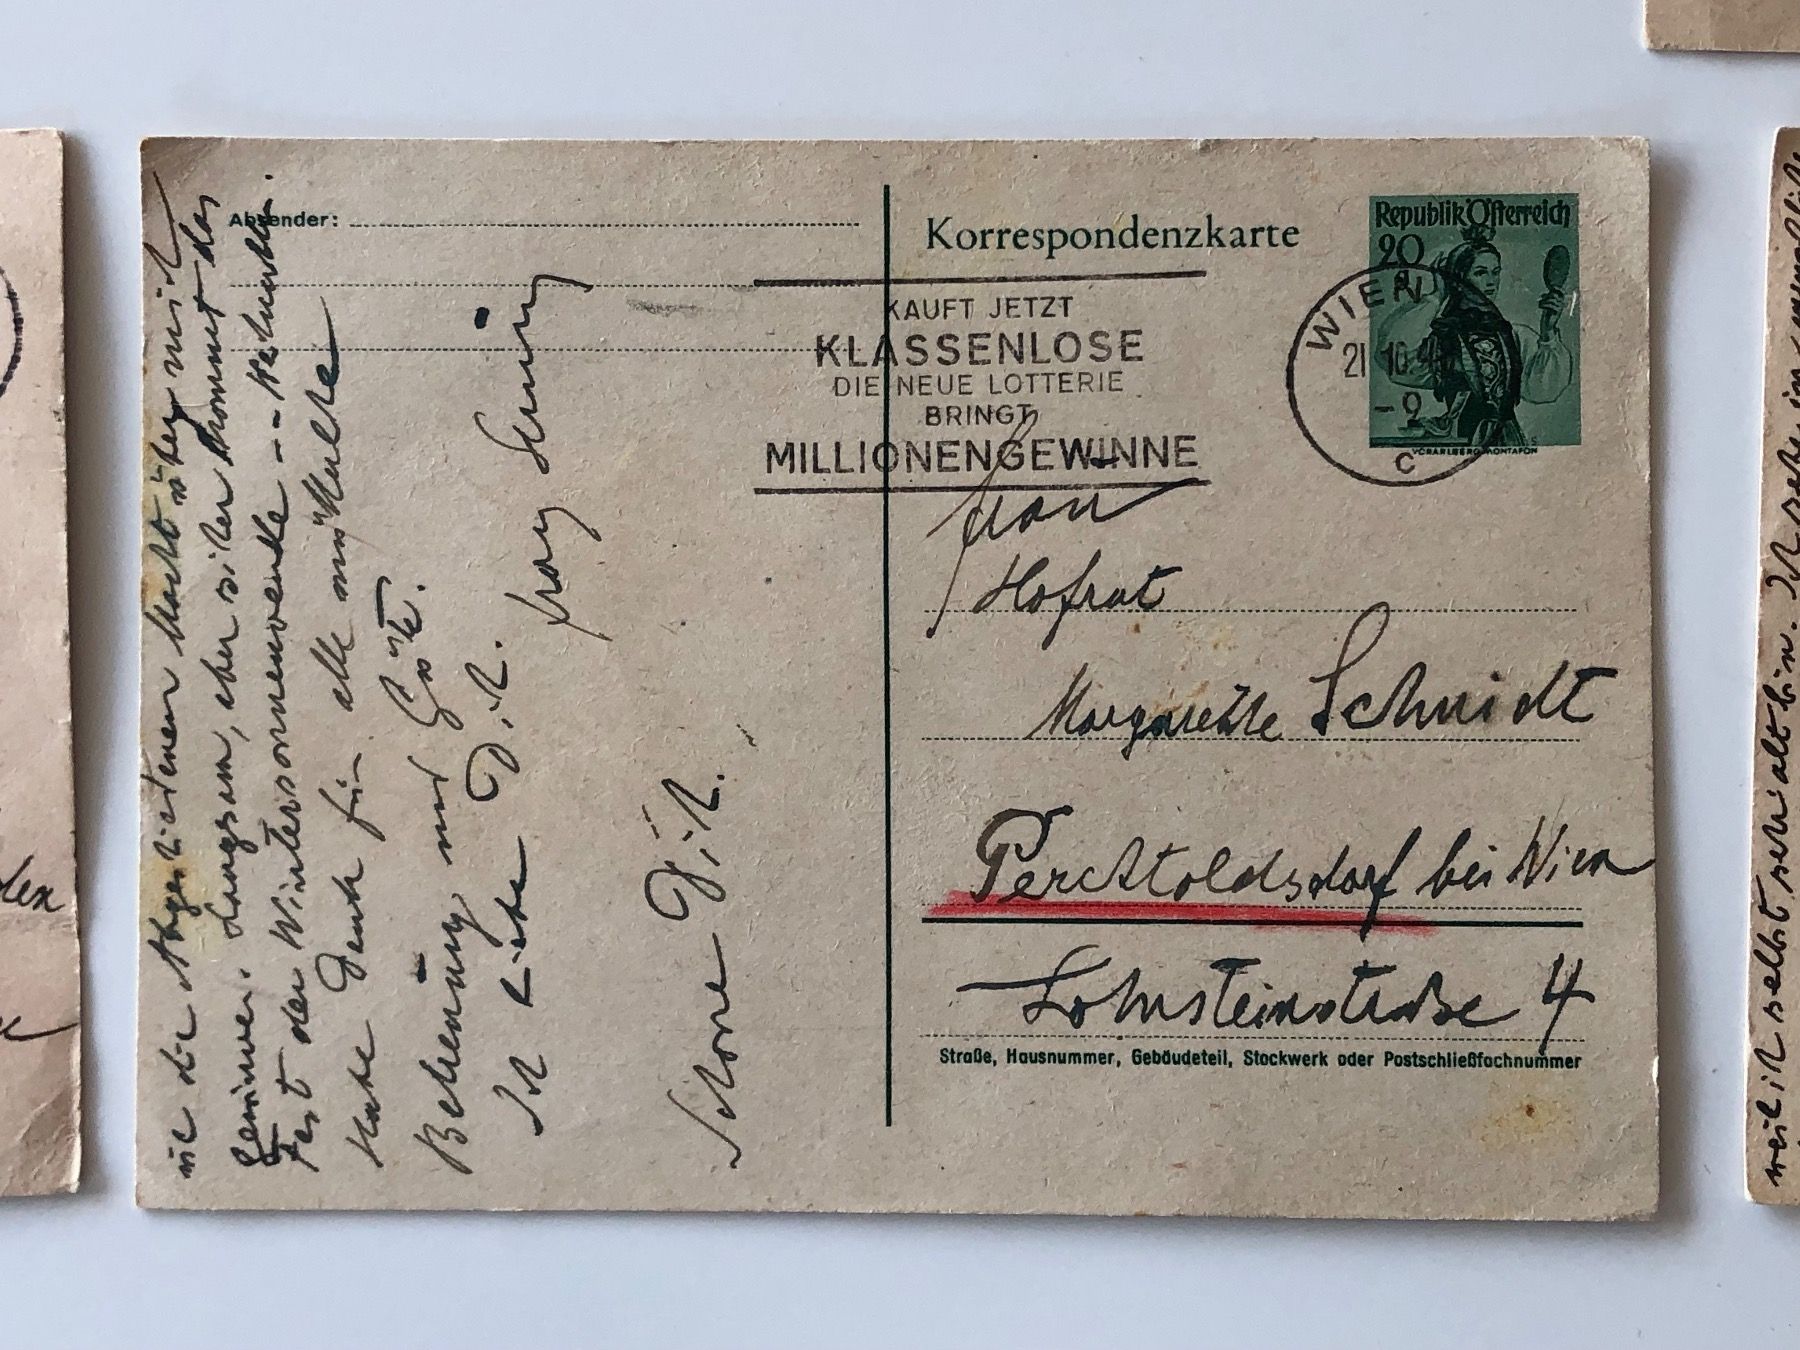 Absender:
Korrespondenzkarte
Republik Österreich
20
WIEN
21 10
-9
C
VORARLBERG MONTAFON
KAUFT JETZT
KLASSENLOSE
DIE NEUE LOTTERIE
BRINGT
MILLIONENGEWINNE
Frau
Hofrat
Margarethe Schmidt
Perchtoldsdorf bei Wien
Lohnsteinstraße 4
Straße, Hausnummer, Gebäudeteil, Stockwerk oder Postschließfachnummer
wie die Abgeschiedenen Macht über mich
gewinnen. Langsam, aber sicher kommt das
Fest der Wintersonnenwende --
Habe Dank für alle
Bethenung und Güte.
Ich liebe Dich.
Schone Dich.
weil ich selbst sehr alt bin. Ich